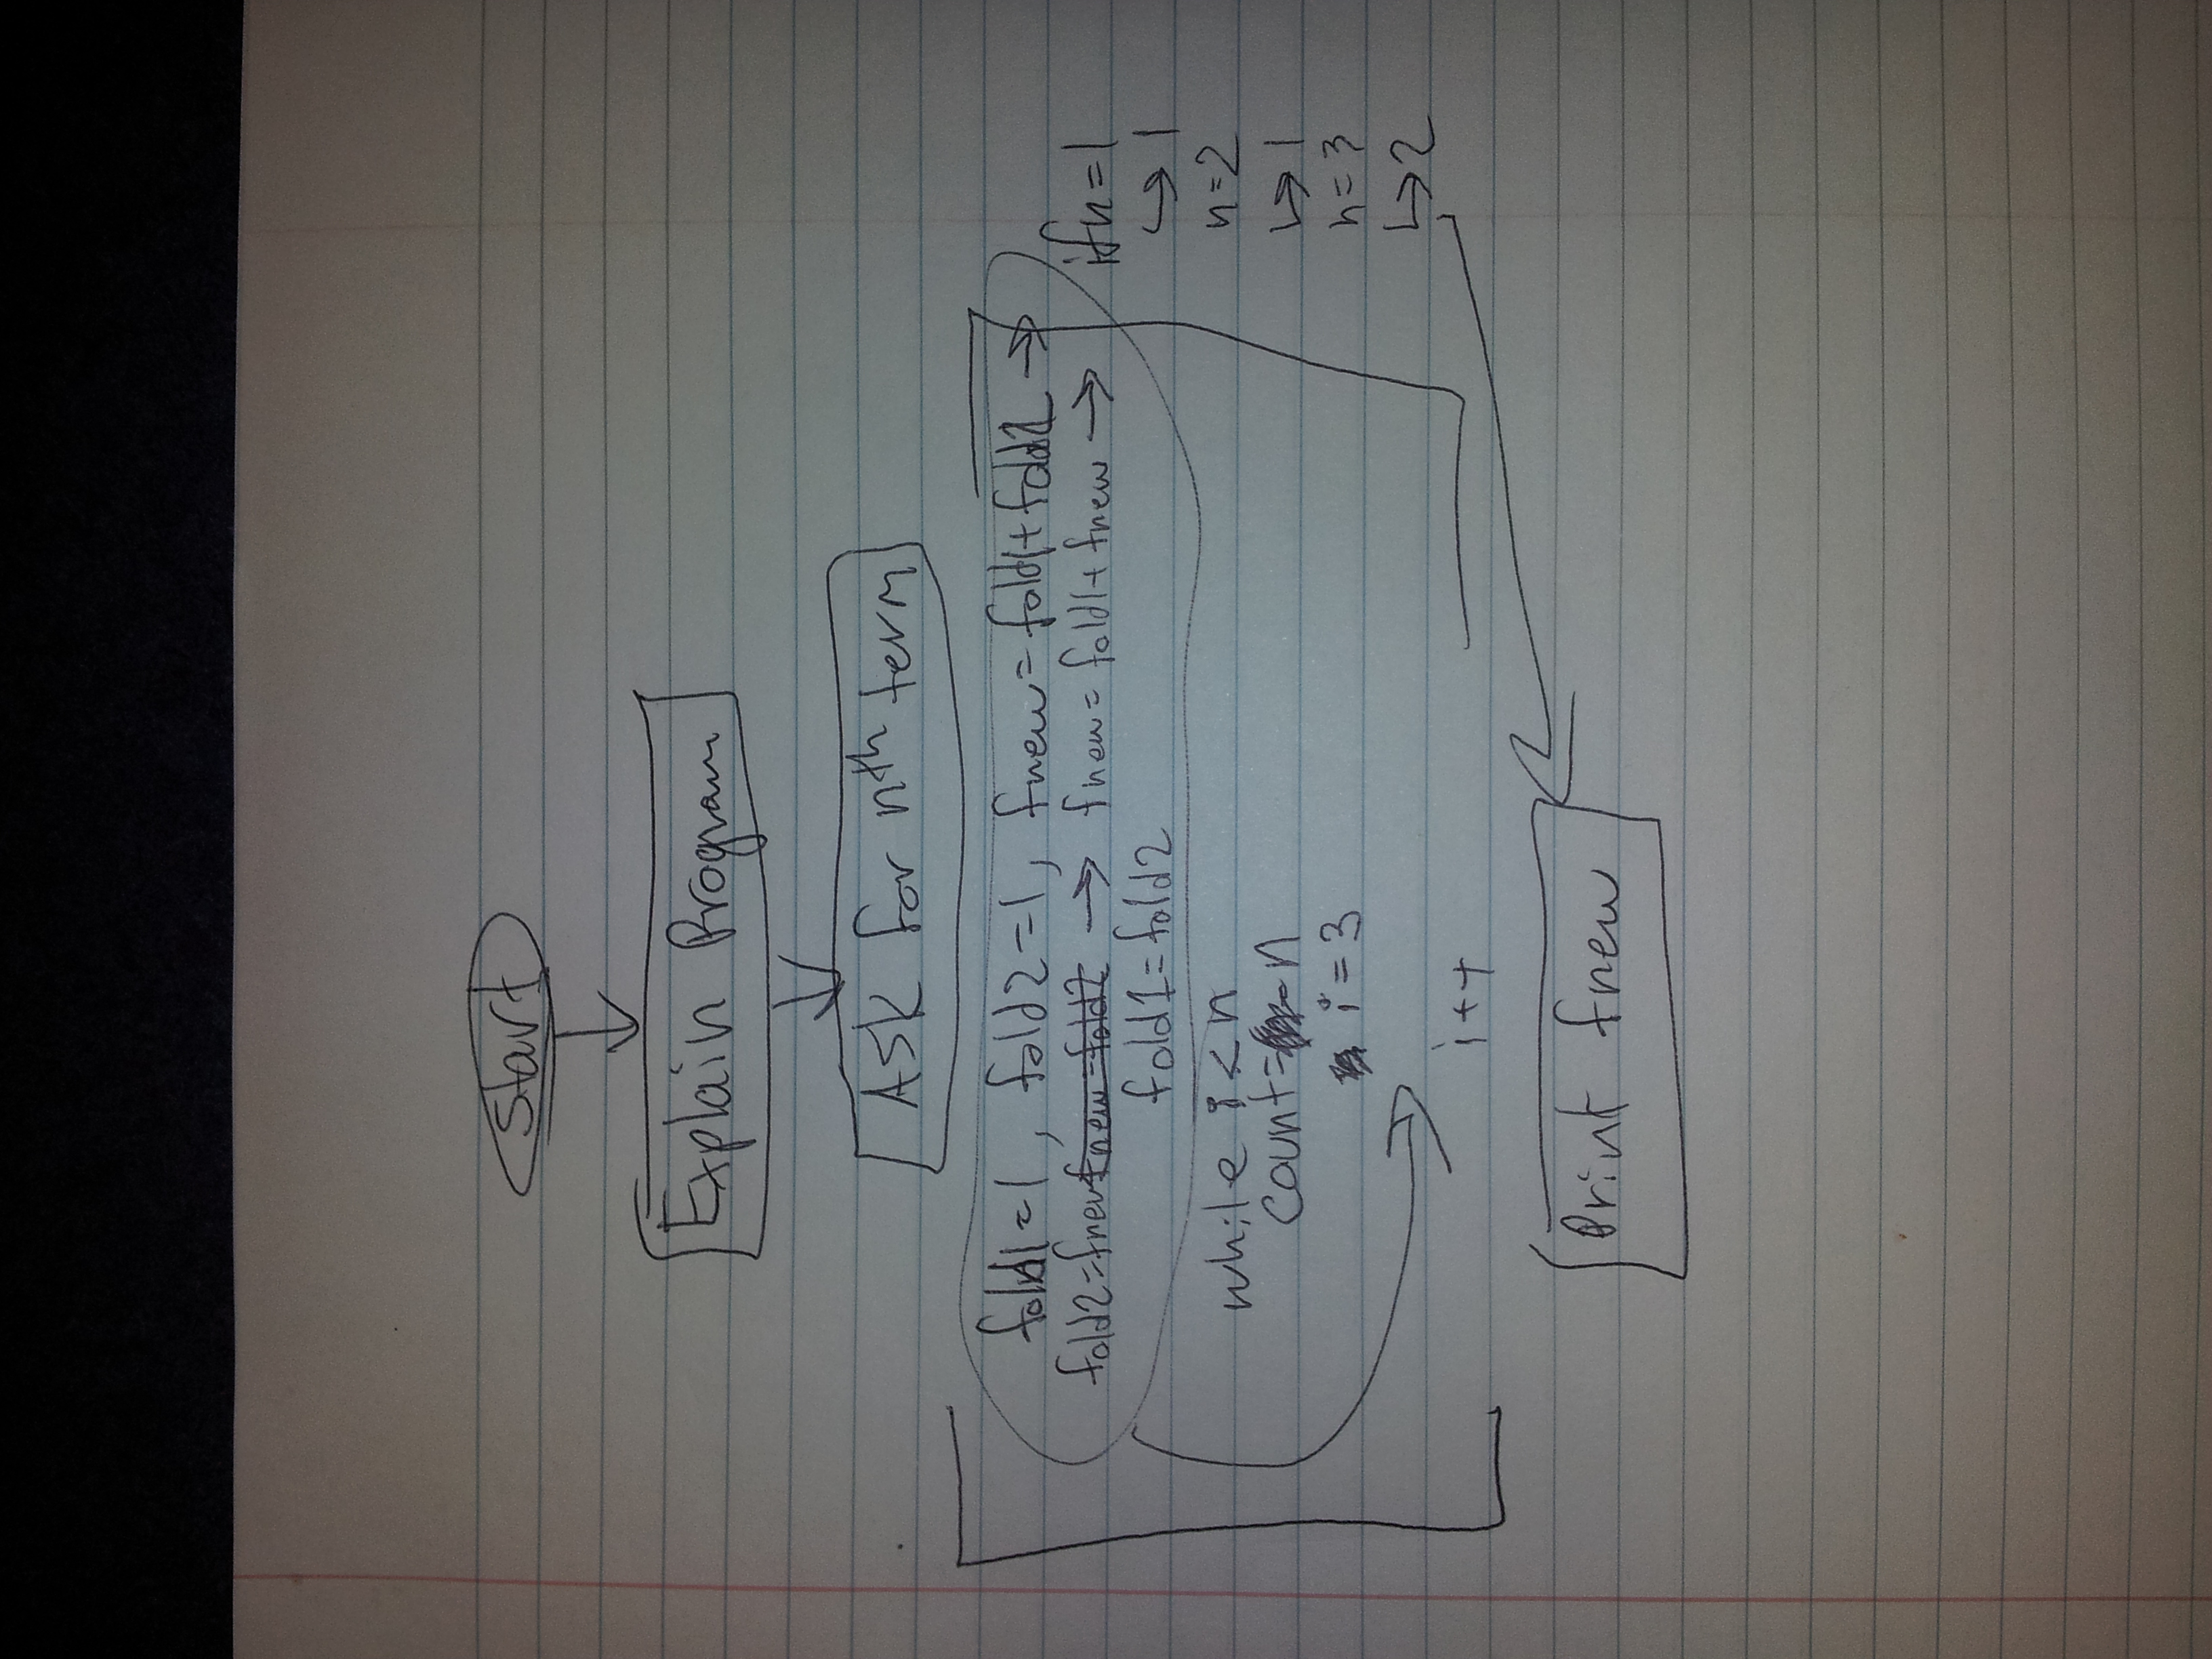 start
Explain Program
Ask for nth term
fold1=1, fold2=1, fnew=fold1+fold2 →
fold2=fnew fnew=fold2 → fnew=fold1+fnew →
fold1=fold2
while i<n
count= n
i=3
i++
if n=1
↳ 1
n=2
↳ 1
n=3
↳ 2
Print fnew